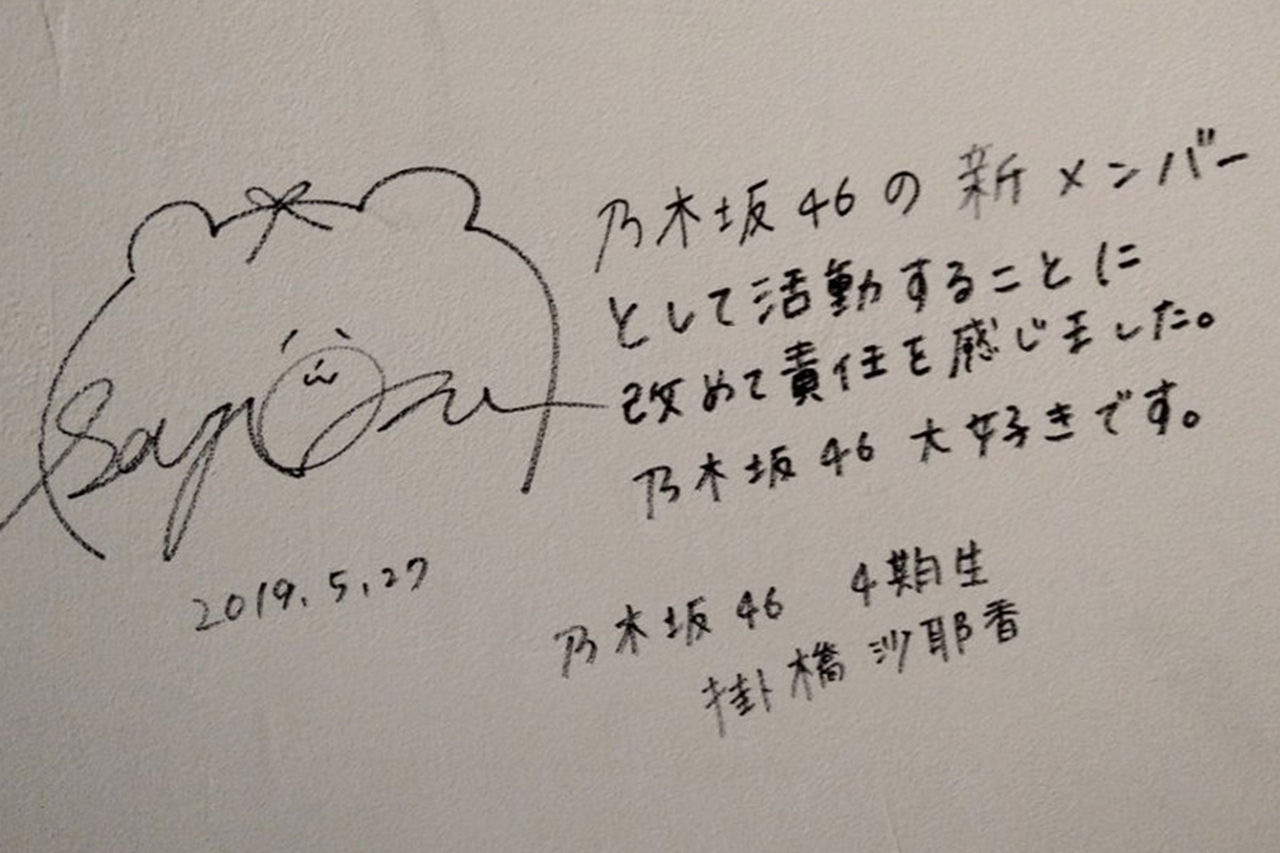 乃木坂46の新メンバー
として活動することに
改めて責任を感じました。
乃木坂46大好きです。
2019.5.27
乃木坂46 4期生
掛橋沙耶香